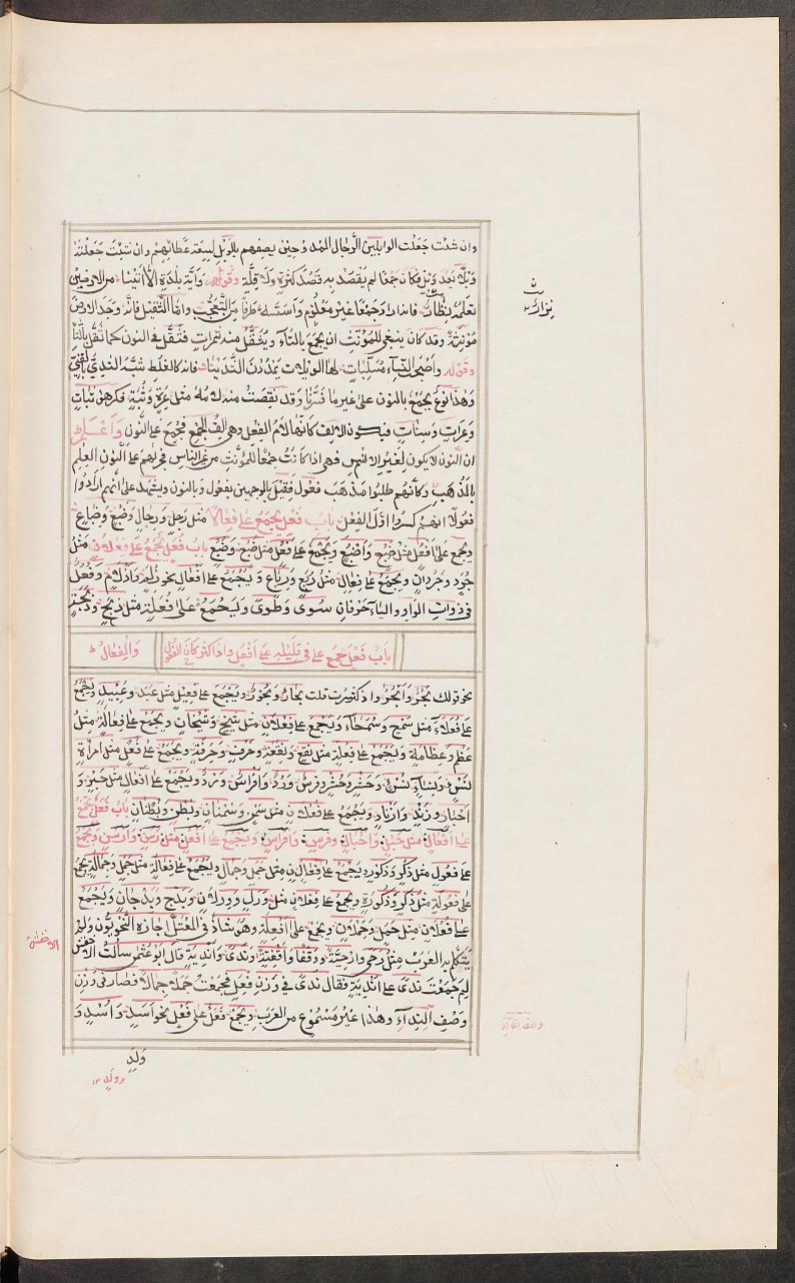 وان شئت جعلت الوابلين الرجال الممدوحين يصفهم بالوبل لسعة عطائهم وان شئت جعلته
وبلا بعد وبل فكان جمعا لم يقصد به قصد كثرة ولا قلة وقولهم واية بلدة الا اتينا من الارضين
تعلمه نظار فاذا اراد جمعا غير معلوم طرفا من التعجب واما التثقيل فانه وجد الارض
مؤنثة وقد كان ينبغي للمؤنث ان يجمع بالتاء ويثقل منه تمرات فثقل في النون كما ثقل بالتاء
وقوله واصبحت النساء مسلبات لها الويلات يمددن الثدينا فانه كالغلط شبه الثدي بالقنى
وهذا نوع يجمع بالنون على غير ما فسرنا وقد نقصت منه لامه مثل عزة وثبة فكرهن ثبات
وعزات وسنات فيكون الالف كانها لام الفعل وهي الف الجمع فجمع على النون واعلم
ان النون لا يكون لغير الانس فهي اذا كانت جمعا للمؤنث من غير الناس على النون العلم
بالمذهب وكأنهم طلبوا مذهب فعول فقيل بالوجهين بفعول وبالنون ويشهد على انهم ارادوا
فعولا انهم كسروا اول الفعل باب فعل يجمع على فعالا مثل رجل ورجال وضبع وضباع
ويجمع على افعل مثل ضبع واضبع ويجمع على فعل مثل ضبع وضبع باب فعل يجمع على فعلان مثل
جرذ وجرذان ويجمع على فعال مثل ربع ورباع ويجمع على افعال نحو زلم وازلام وفعل
في ذوات الواو والياء حرفان سوى وطوى ويجمع على افعلة مثل
باب فعل جمع على في قليله على افعل واذا كثر كان الفعول
والفعال
نحو قولك بحر وابحر واذا كثرت قلت بحار وبحور ويجمع على فعيل مثل عبد وعبيد ويجمع
على فعلاء مثل سمح وسمحاء ويجمع على فعلان مثل شيخ وشيخان ويجمع على فعالة مثل
عظم وعظامة ويجمع على فعلة مثل فقع وفقعة وحرف وحرفة ويجمع على فعل مثل امراة
نسء ونساء نسء وحشر وحشر وفرس ورد وافراس ورد ويجمع على افعال مثل حبر و
احبار وزند وازناد ويجمع على فعلان مثل سمن وسمنان وبطن وبطنان باب فعل يجمع
على افعال مثل حبل واحبال وفرس وافراس ويجمع على افعل مثل رسن وارسن ويجمع
على فعول مثل ذكر وذكور ويجمع على فعال مثل جمل وجمال ويجمع على فعالة مثل جمل وجمالة يجمع
على فعولة مثل ذكر وذكورة ويجمع على فعلان مثل ورل وورلان وبذج وبذجان ويجمع
على فعلان مثل حمل وحملان ويجمع على افعلة وهو شاذ في المعتل اجازه النحويون ولم
يتكلم به العرب مثل رحى وارحية وقفا واقفية وندى واندية قال ابو عثمن سالت الاخفش
لم جمعت ندى على اندية فقال ندى في وزن فعل فجمعت جملا جمالا فصار في وزن
وصف النداء وهذا غير مسموع من العرب ويجمع فعل على فعل نحو اسد واسد و
ولد
وولد
الاخفش